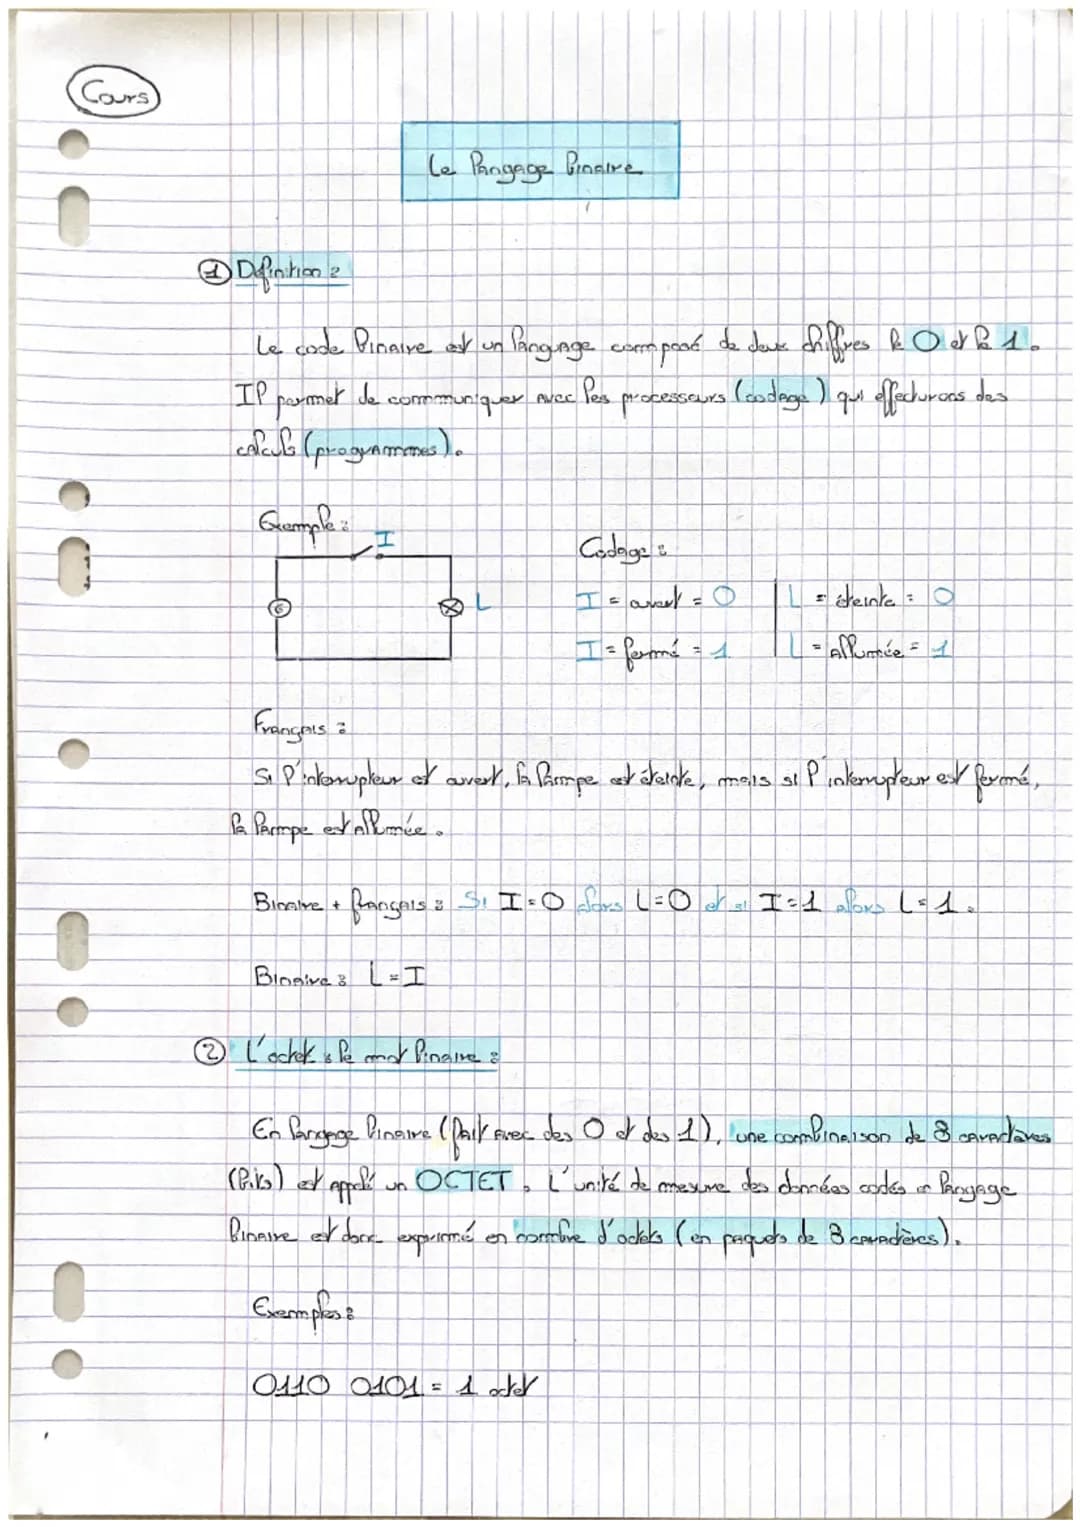 Cours
Le langage binaire
① Définition :
Le code binaire est un langage composé de deux chiffres le 0 et le 1.
Il permet de communiquer avec les processeurs (codage) qui effecturons des
calculs (programmes).
Exemple :
I
G
L
Codage :
I = ouvert = 0 | L = éteinte = 0
I = fermé = 1 | L = allumée = 1
Français :
Si l'interrupteur est ouvert, la lampe est éteinte, mais si l'interrupteur est fermé,
la lampe est allumée.
Binaire + français : Si I=0 alors L=0 et si I=1 alors L=1.
Binaire : L=I
② L'octet : le mot binaire :
En langage binaire (fait avec des 0 et des 1), une combinaison de 8 caractères
(bits) est appelé un OCTET. L'unité de mesure des données codés en langage
binaire est donc exprimé en nombre d'octets (en paquets de 8 caractères).
Exemples :
0110 0101 = 1 octet